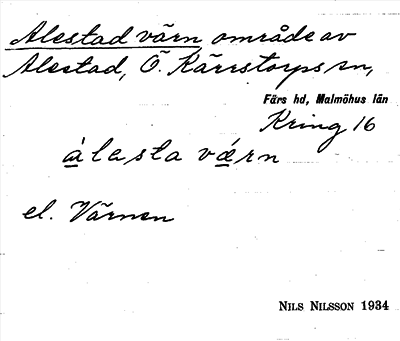 Alestad värn område av
Alestad, Ö. Kärrstorps sn,
Färs hd, Malmöhus län
Kring 16
álesta vǽrn
el. Värnen
NILS NILSSON 1934